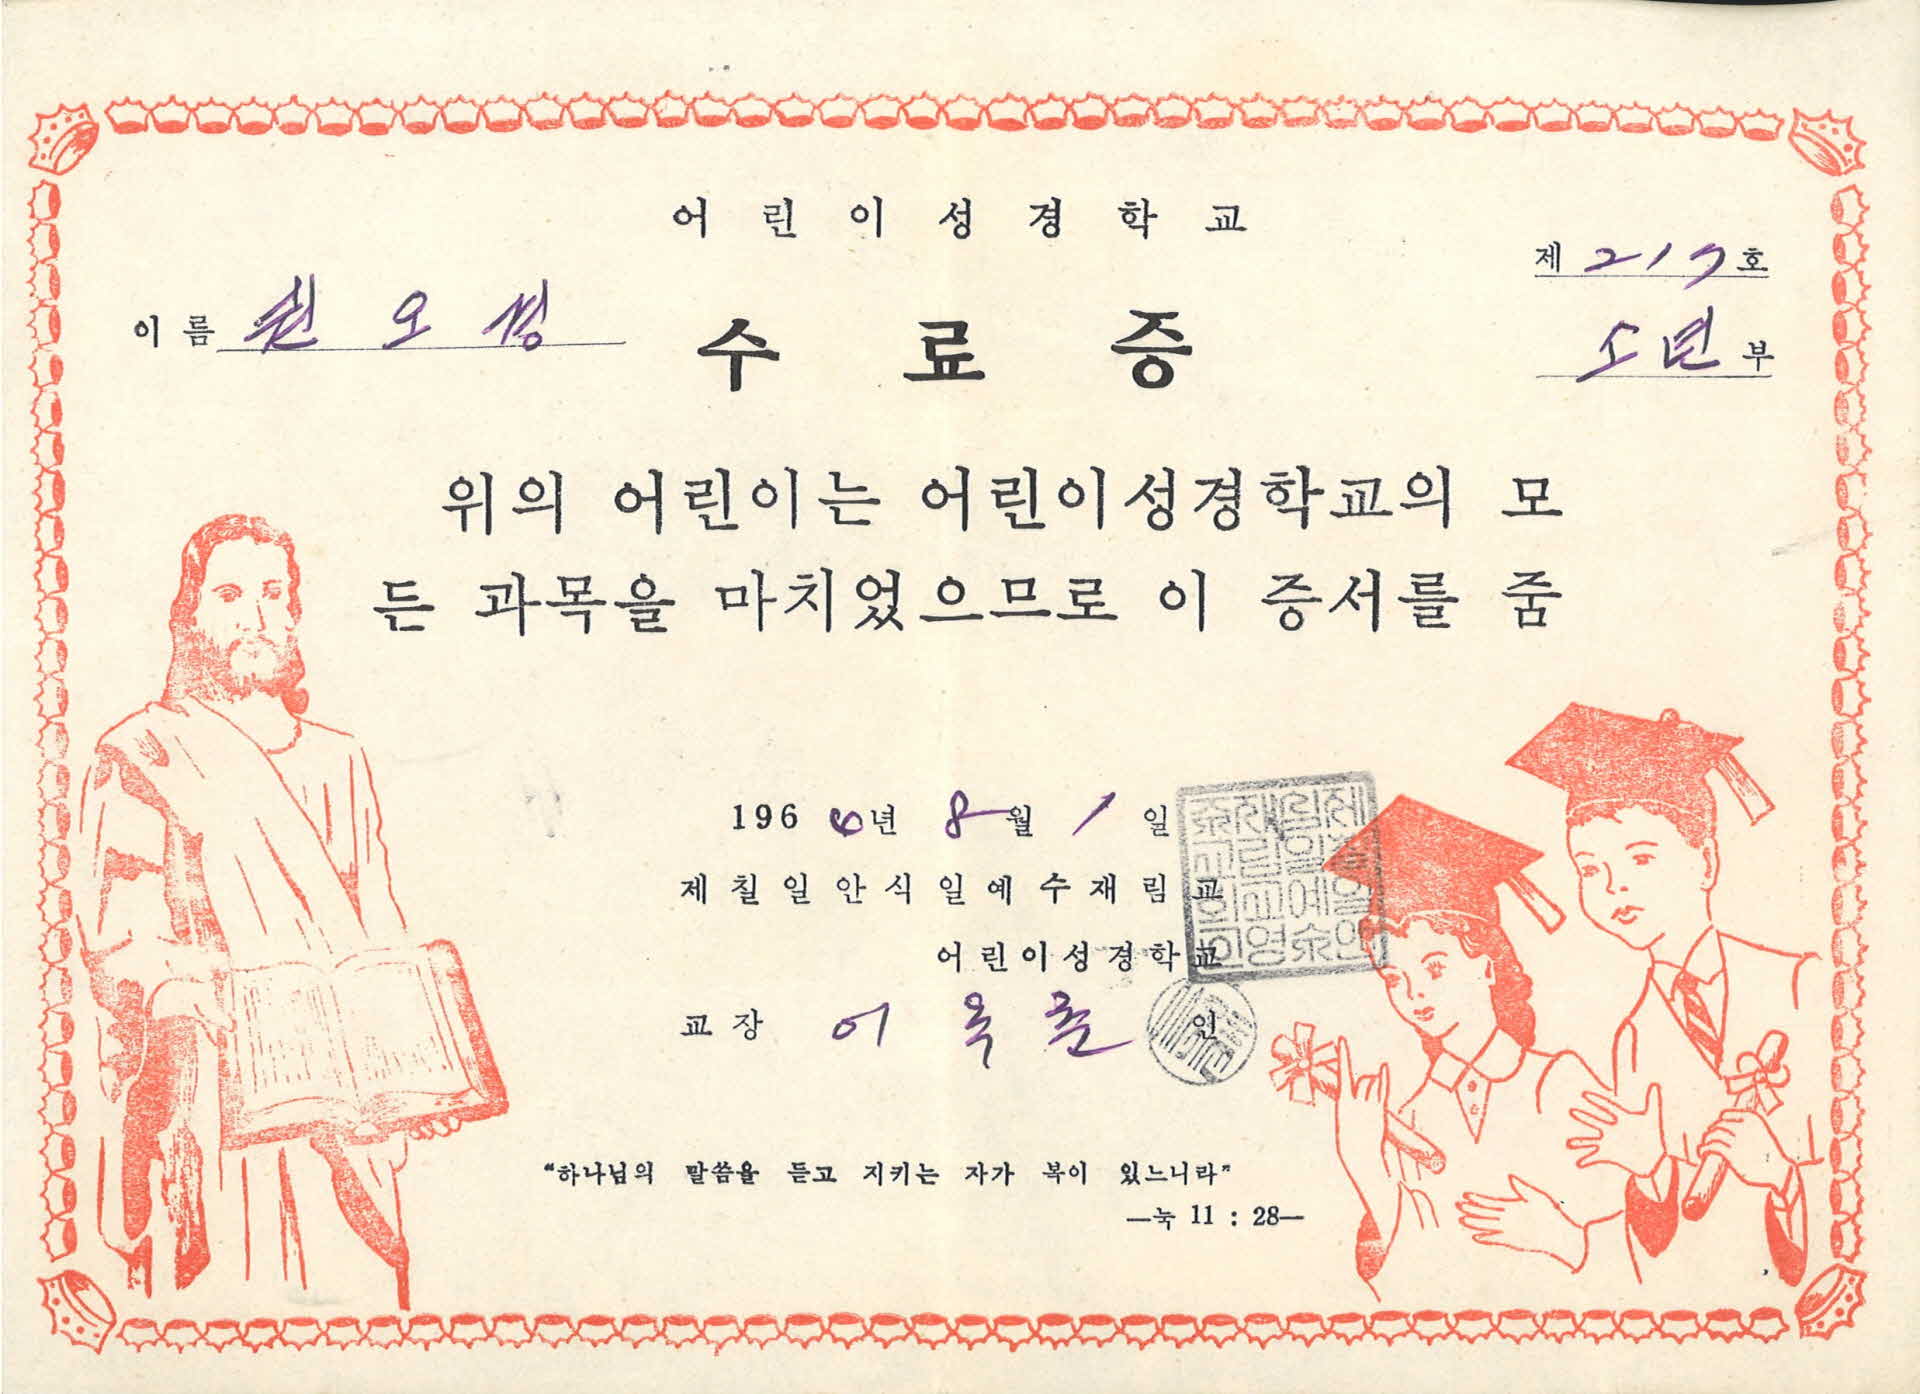 어린이성경학교
제 217 호
이름 권오경
수료증
소년 부
위의 어린이는 어린이성경학교의 모
든 과목을 마치었으므로 이 증서를 줌
1966년 8월 1일
제칠일안식일예수재림교
어린이성경학교
교장 이옥춘 인
“하나님의 말씀을 듣고 지키는 자가 복이 있느니라”
—눅 11 : 28—